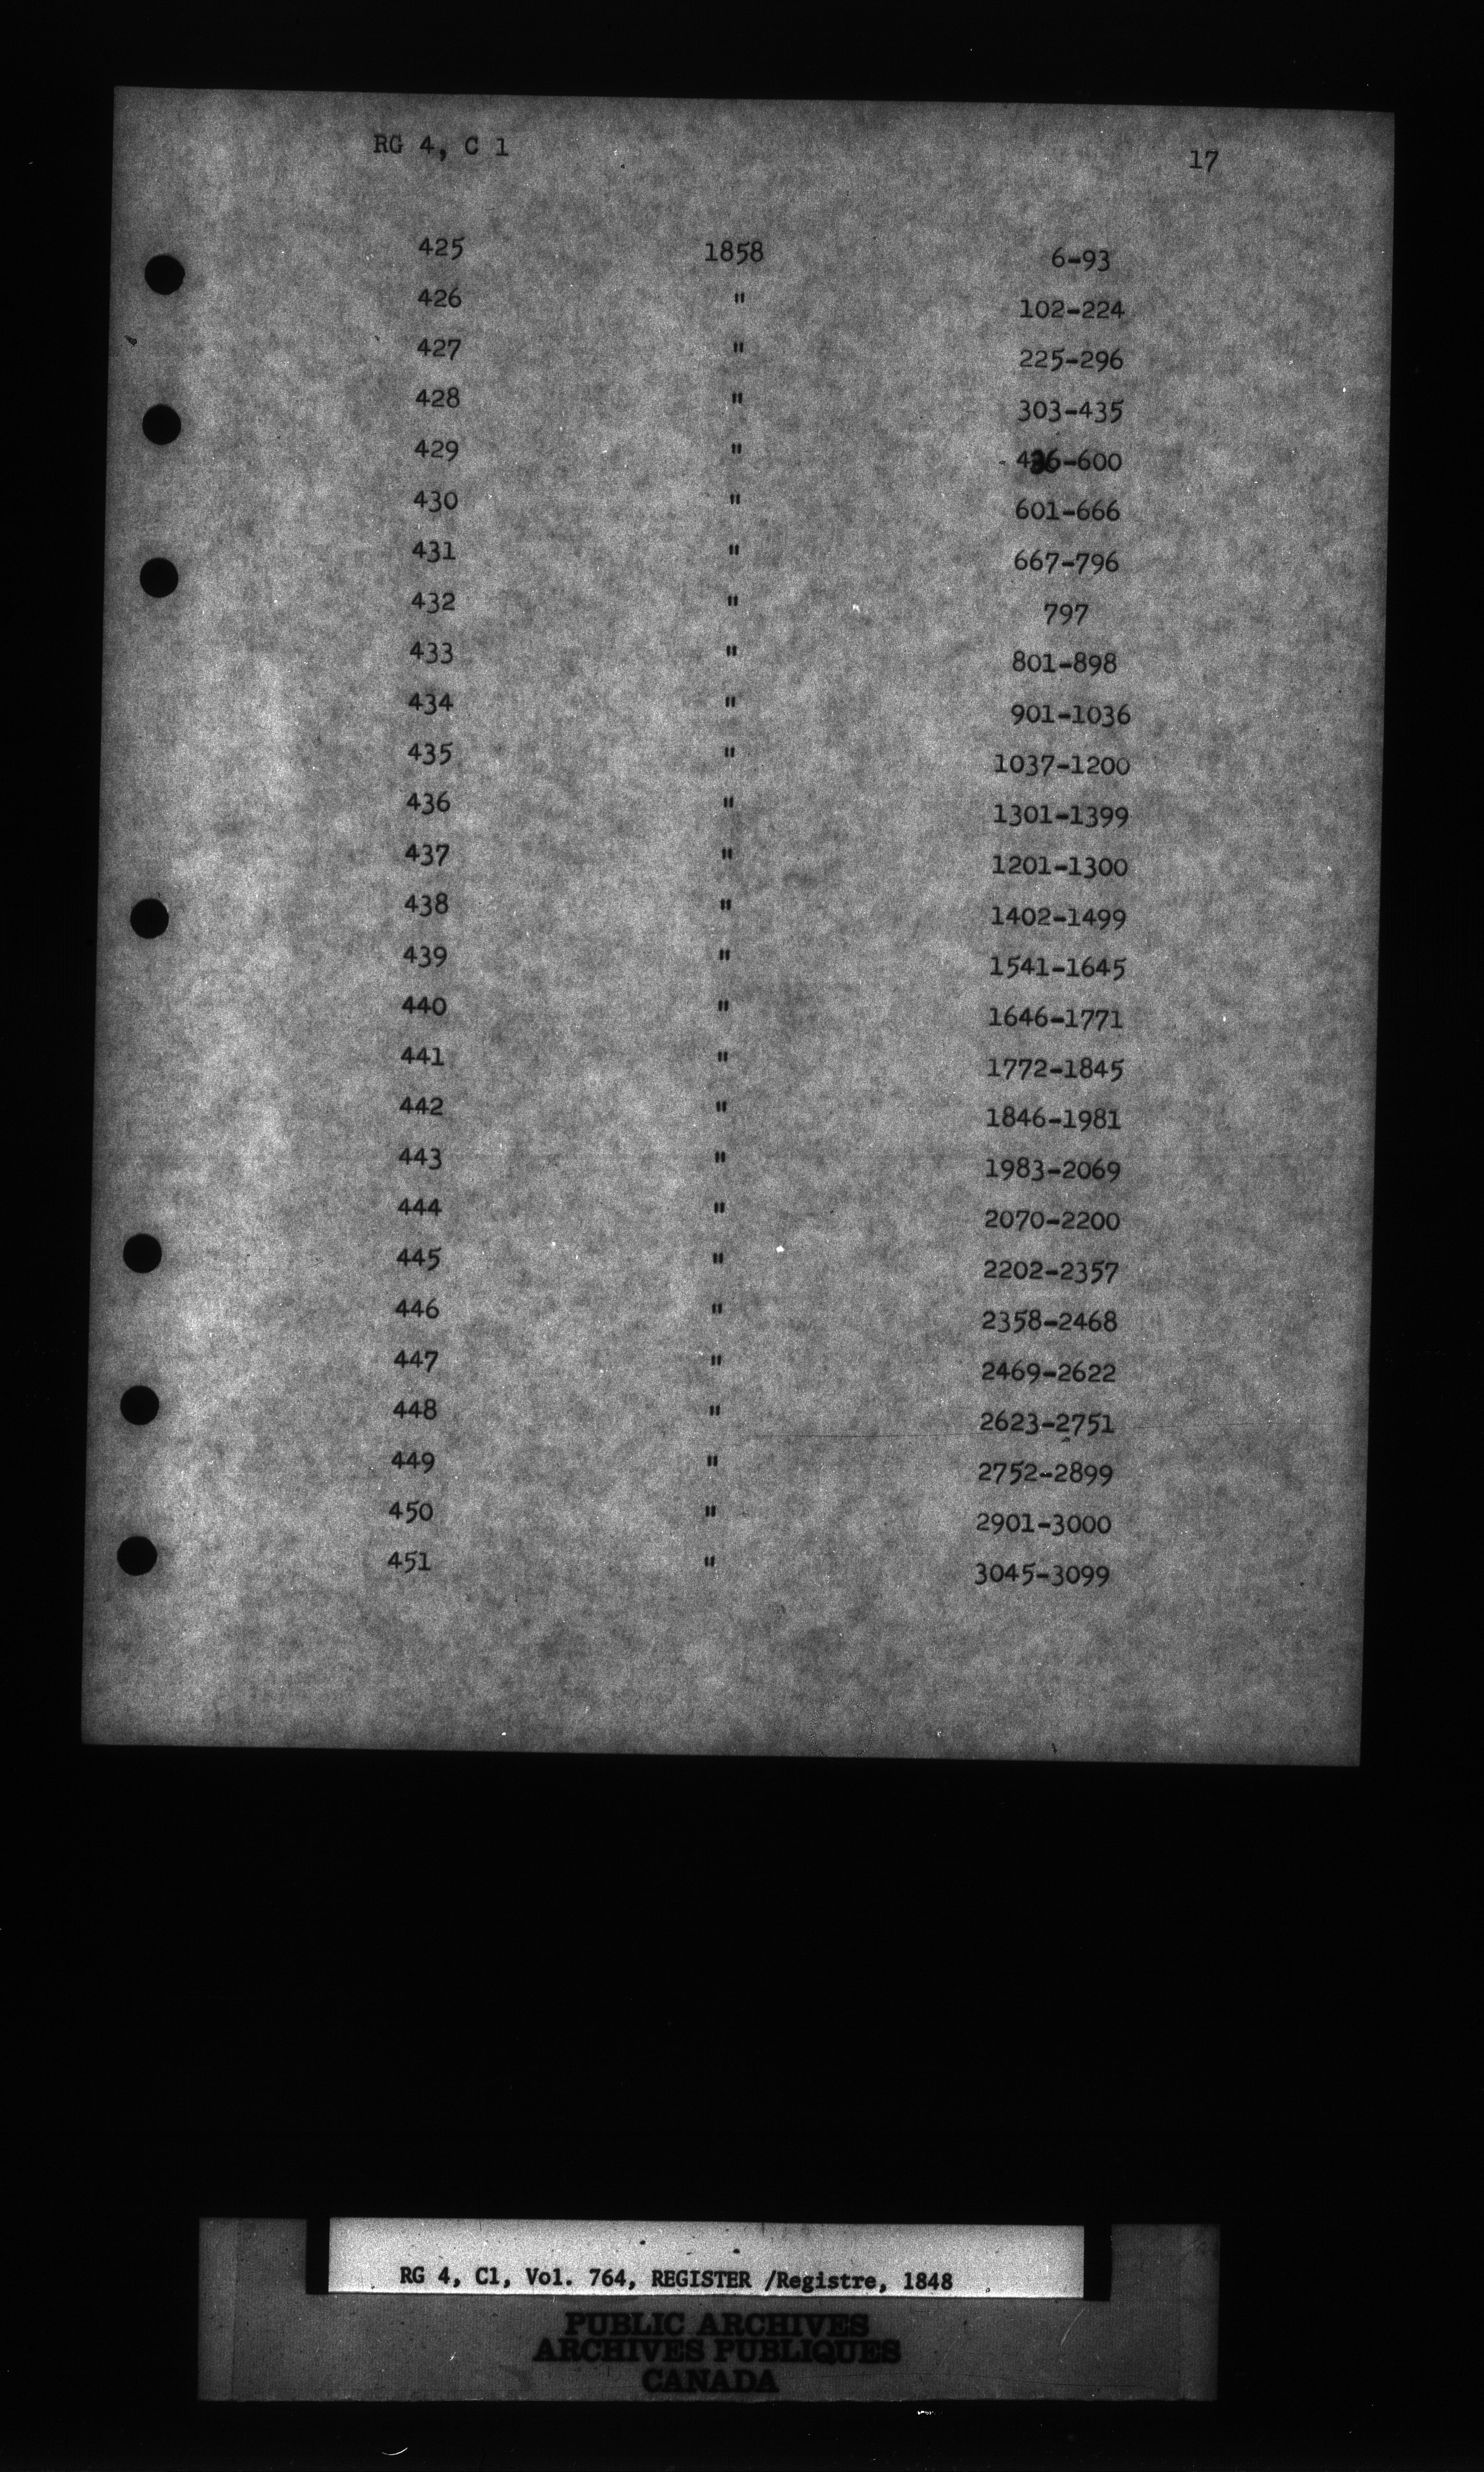 RG 4, C 1 17
425 1858 6-93
426 " 102-224
427 " 225-296
428 " 303-435
429 " 436-600
430 " 601-666
431 " 667-796
432 " 797
433 " 801-898
434 " 901-1036
435 " 1037-1200
436 " 1301-1399
437 " 1201-1300
438 " 1402-1499
439 " 1541-1645
440 " 1646-1771
441 " 1772-1845
442 " 1846-1981
443 " 1983-2069
444 " 2070-2200
445 " 2202-2357
446 " 2358-2468
447 " 2469-2622
448 " 2623-2751
449 " 2752-2899
450 " 2901-3000
451 " 3045-3099
RG 4, C1, Vol. 764, REGISTER /Registre, 1848
PUBLIC ARCHIVES
ARCHIVES PUBLIQUES
CANADA